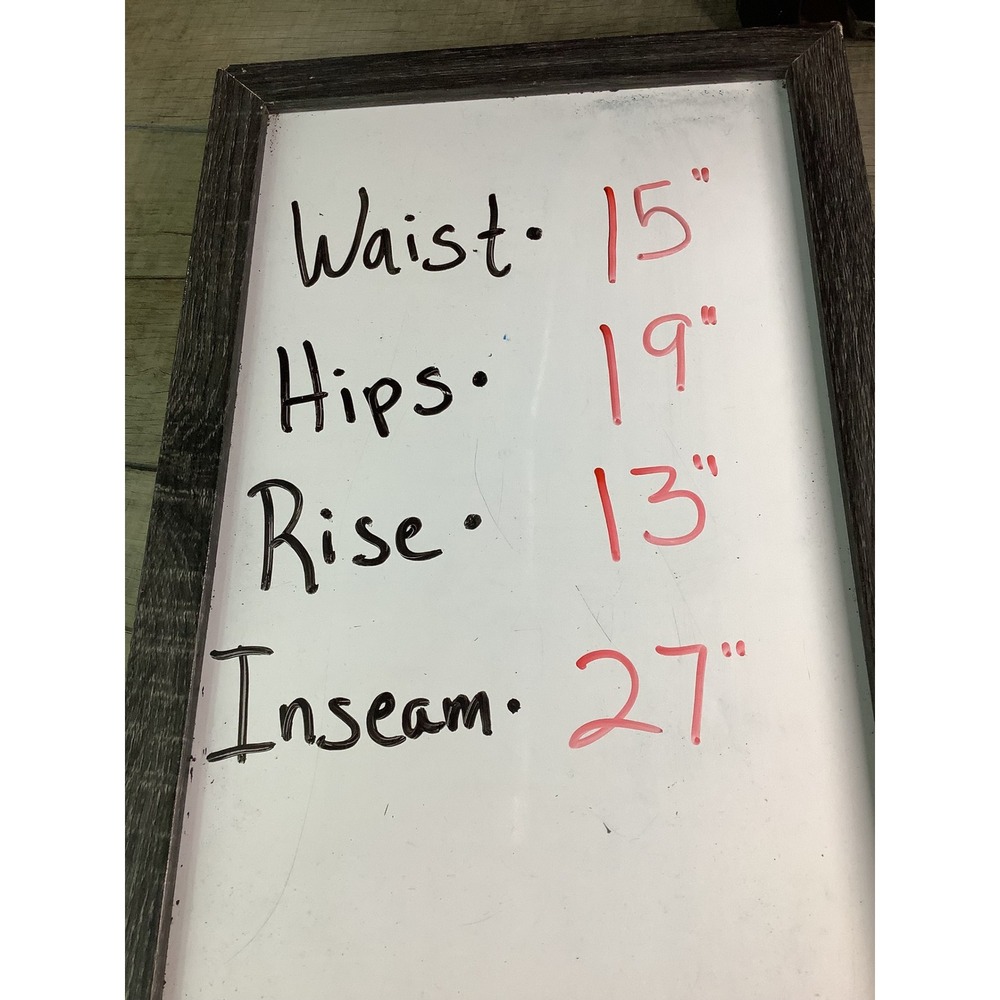 Waist. 15"
Hips. 19"
Rise. 13"
Inseam. 27"